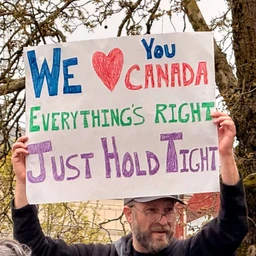 WE ❤ YOU CANADA
EVERYTHING'S RIGHT
JUST HOLD TIGHT